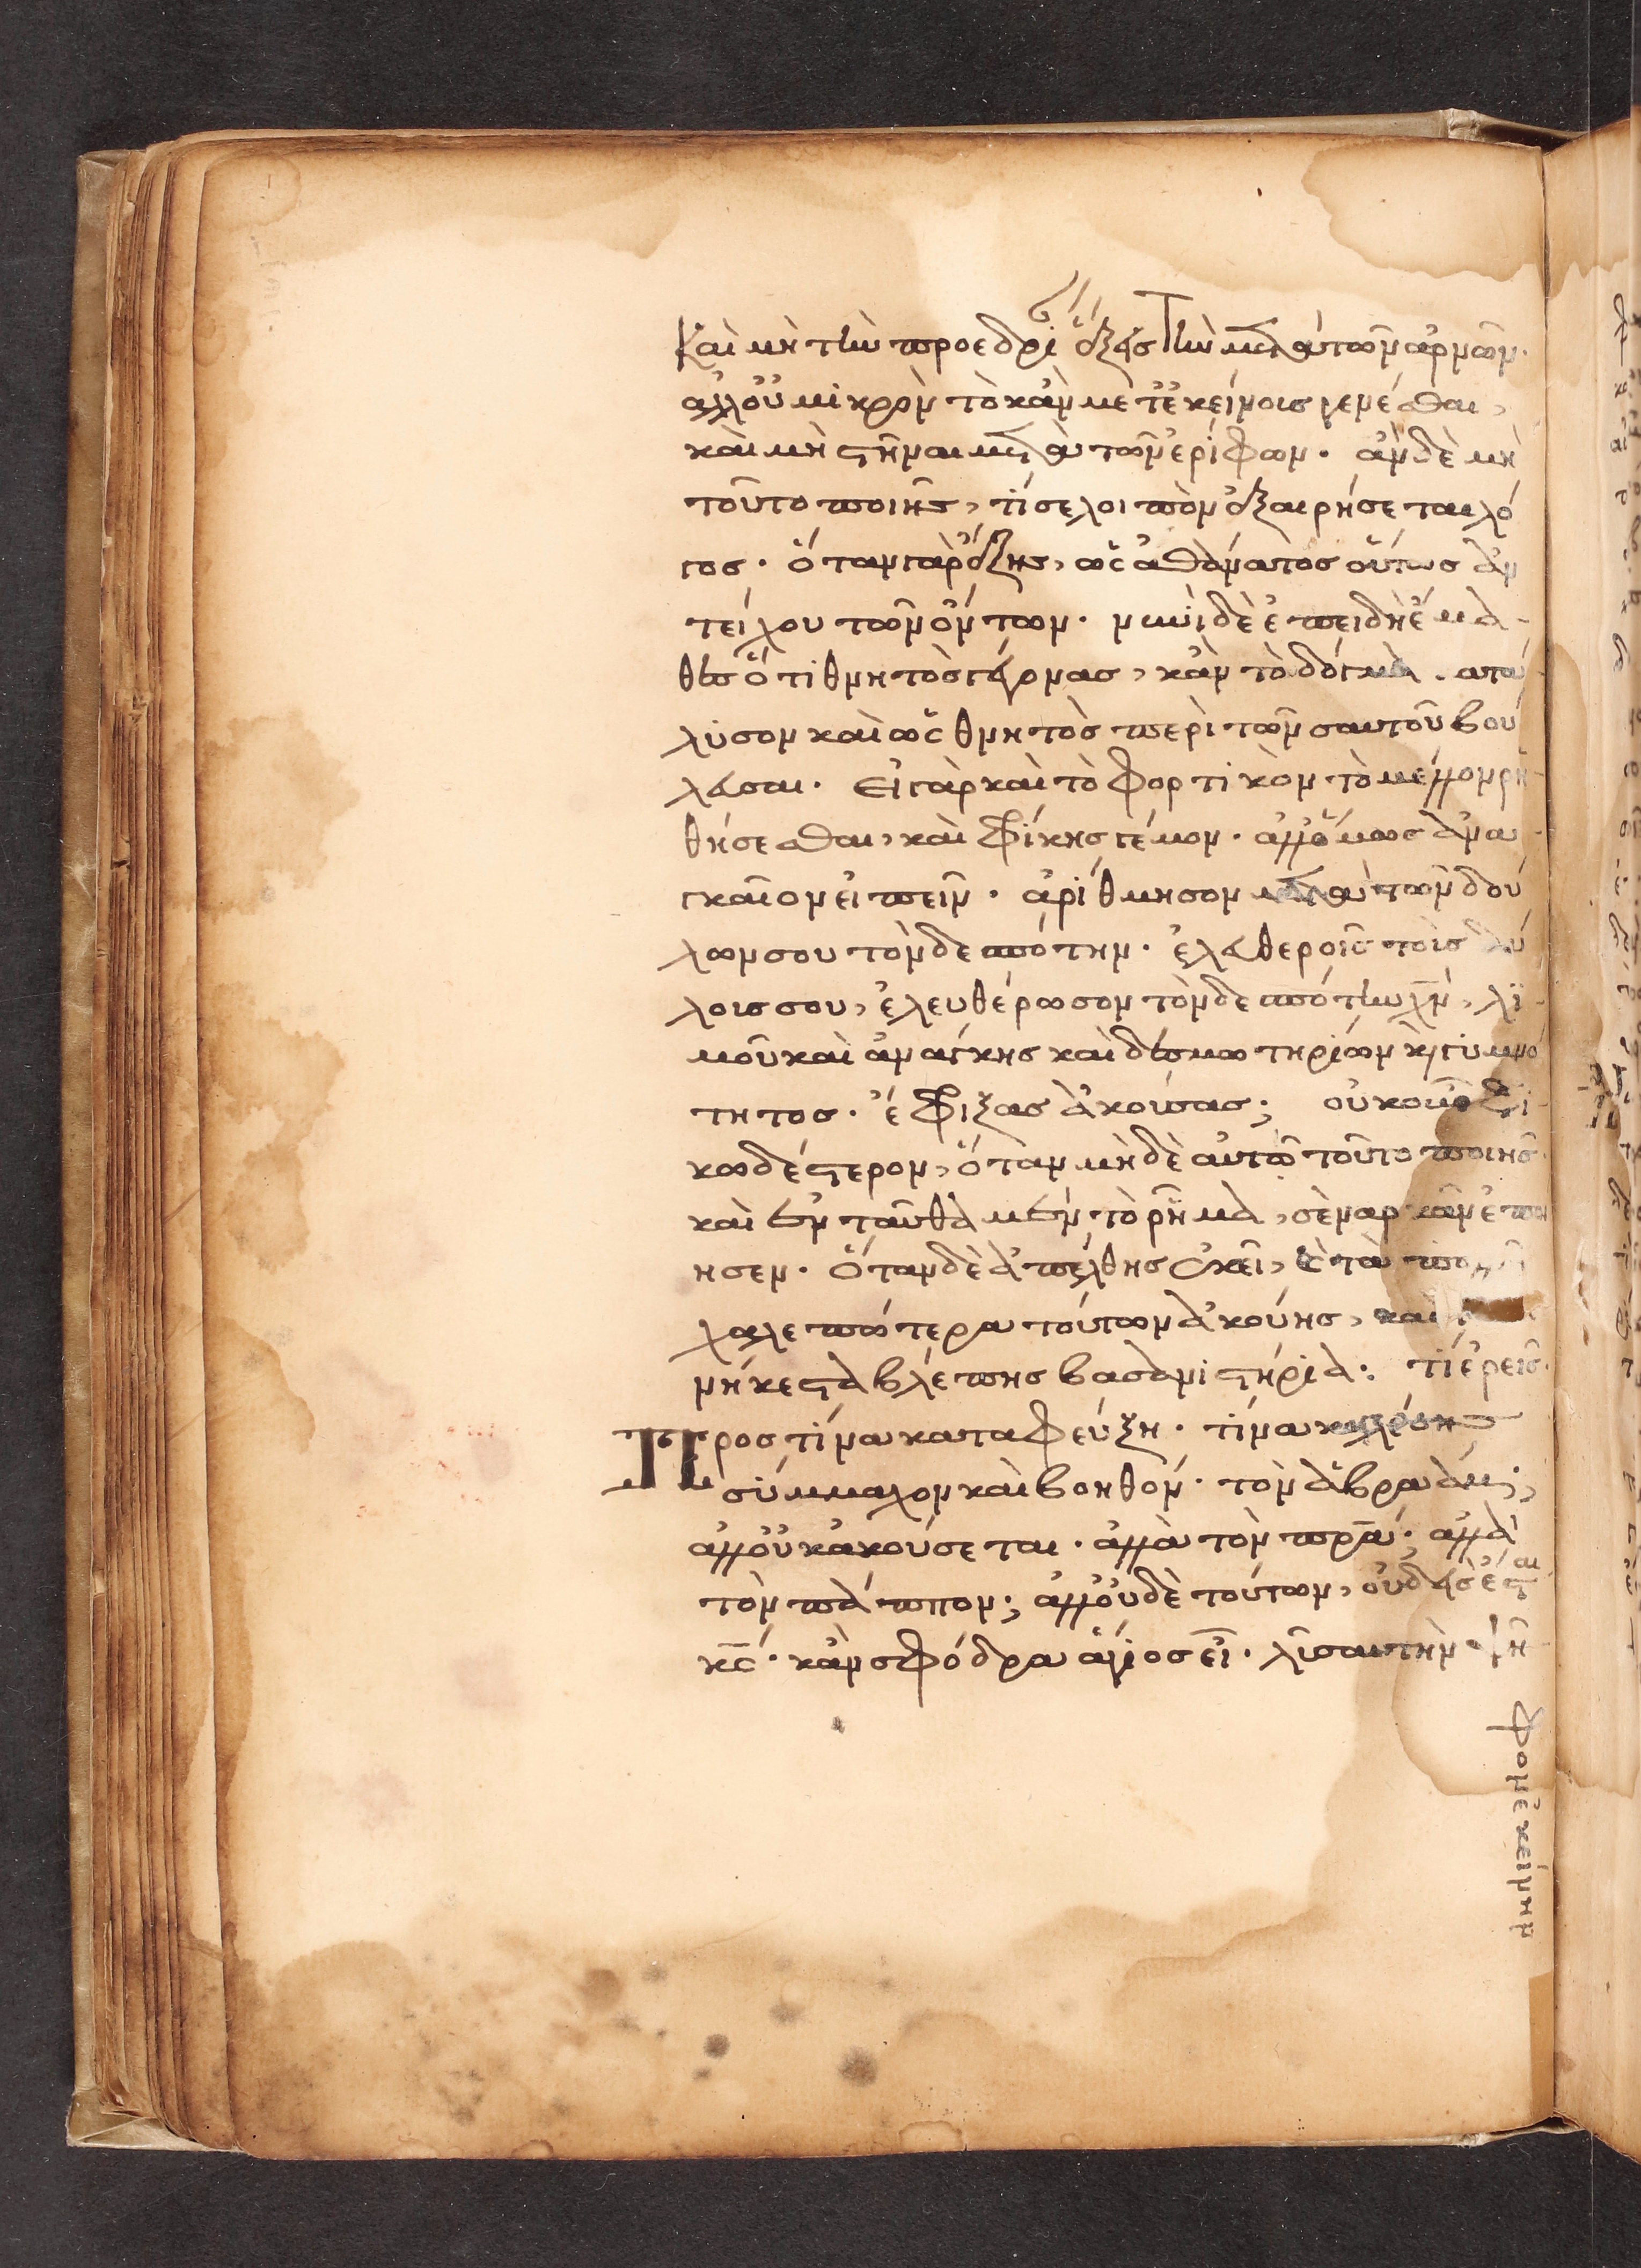 Καὶ μὴ τὴν προεδρί ἕξεις τὴν μετὰ τῶν ἀρνῶν·
ἀλλ' οὐ μικρὸν τὸ κἂν μετ' ἐκείνοις γενέσθαι,
καὶ μὴ στῆναι μετὰ τῶν ἐρίφων. ἂν δὲ μὴ
τοῦτο ποιῆς, τίς σε λοιπὸν ἐξαιρήσεται λό
γος. ὅταν γὰρ ἕξης, ὡς ἀθάνατος οὕτως ἀν
τείχου τῶν ὄντων. νυνὶ δὲ ἐπειδὴ ἔμα
θες ὅτι θνητὸς γέγονας, κἂν τὸ δόγμα
λύσον καὶ ὡς θνητὸς περὶ τῶν σαυτοῦ βού
λευσαι. Εἰ γὰρ καὶ τὸ φορτικὸν τὸ μέλλον ῥη
θήσεσθαι, καὶ φρίκης γέμον. ἀλλ' ὅμως ἀνα
γκαῖον εἰπεῖν. ἀρίθμησον μετὰ τῶν δού
λων σου τὸν δεσπότην. ἐλευθεροῖς τοὺς δού
λοις σου, ἐλευθέρωσον τὸν δεσπότην χν, λι
μοῦ καὶ ἀνάγκης καὶ δεσμωτηρίων κ γυμνό
τητος. ἔφριξας ἀκούσας; οὐκοῦν φρι
κωδέστερον, ὅταν μηδὲ αὐτῷ τοῦτο ποιῆς
καὶ ἐνταῦθα μὲν τὸ ῥῆμα, σὲ ναρκᾶν ἐποί
ησεν. Ὅταν δὲ ἀπέλθης ἐκεῖ, κ τὰ
χαλεπώτερα τούτων ἀκούης, καὶ
νήκεστα βλέπης βασανιστήρια. τί ἐρεῖς.
Πρὸς τίνα καταφεύξη. τίνα καλέσης
σύμμαχον καὶ βοηθόν. τὸν ἀβραάμ;
ἀλλ' οὐκ ἀκούσεται. ἀλλὰ τὸν πρα; ἀλλὰ
τὸν πάππον; ἀλλ' οὐδὲ τούτων, οὐδεὶς ἔσται
κς. κἂν σφόδρα ἅγιος εἶ. λῦσαι τὴν ψῆ
φον ἐκείνην